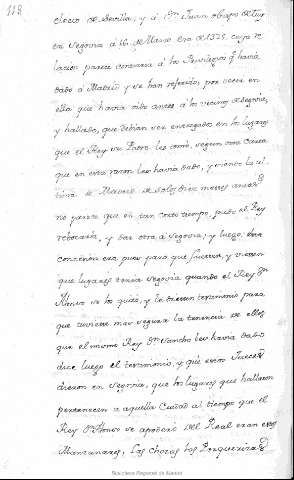 118
clerio de Sevilla; y á Dn. Juan obispo de Tuy
en Segovia á 16 de Marzo era de 1329, cuya re
lacion parece contraria á los Privilegios q. havia
dado á Madrid y se han referido, por decir en
ella que havia oido antes á los vecinos de Segovia,
y hallado, que debian ser entregados en los lugares
que el Rey su Padre les tomó, segun una Carta
que en esta razon les havia dado, y siendo la ul
tima de Madrid de solos tres meses antes
no parece que en tan corto tiempo, pudo el Rey
rebocarla, y dar otra á Segovia; y luego
contenia era pues para que fuesen, y viesen
que lugares tenia Segovia quando el Rey Dn.
Alonso se los quitó, y la diesen testimonio para
que tuviese mas segura la tenencia de ellos
que el mismo Rey Dn. Sancho les havia dado
dice luego el testimonio, y que estos Jueces
dieron en Segovia, que los lugares que hallaron
pertenecen a aquella Ciudad al tiempo que el
Rey Dn. Alonso se apoderó del Real eran
Manzanares, Las Chozas los Porquerizas
Biblioteca Regional de Madrid